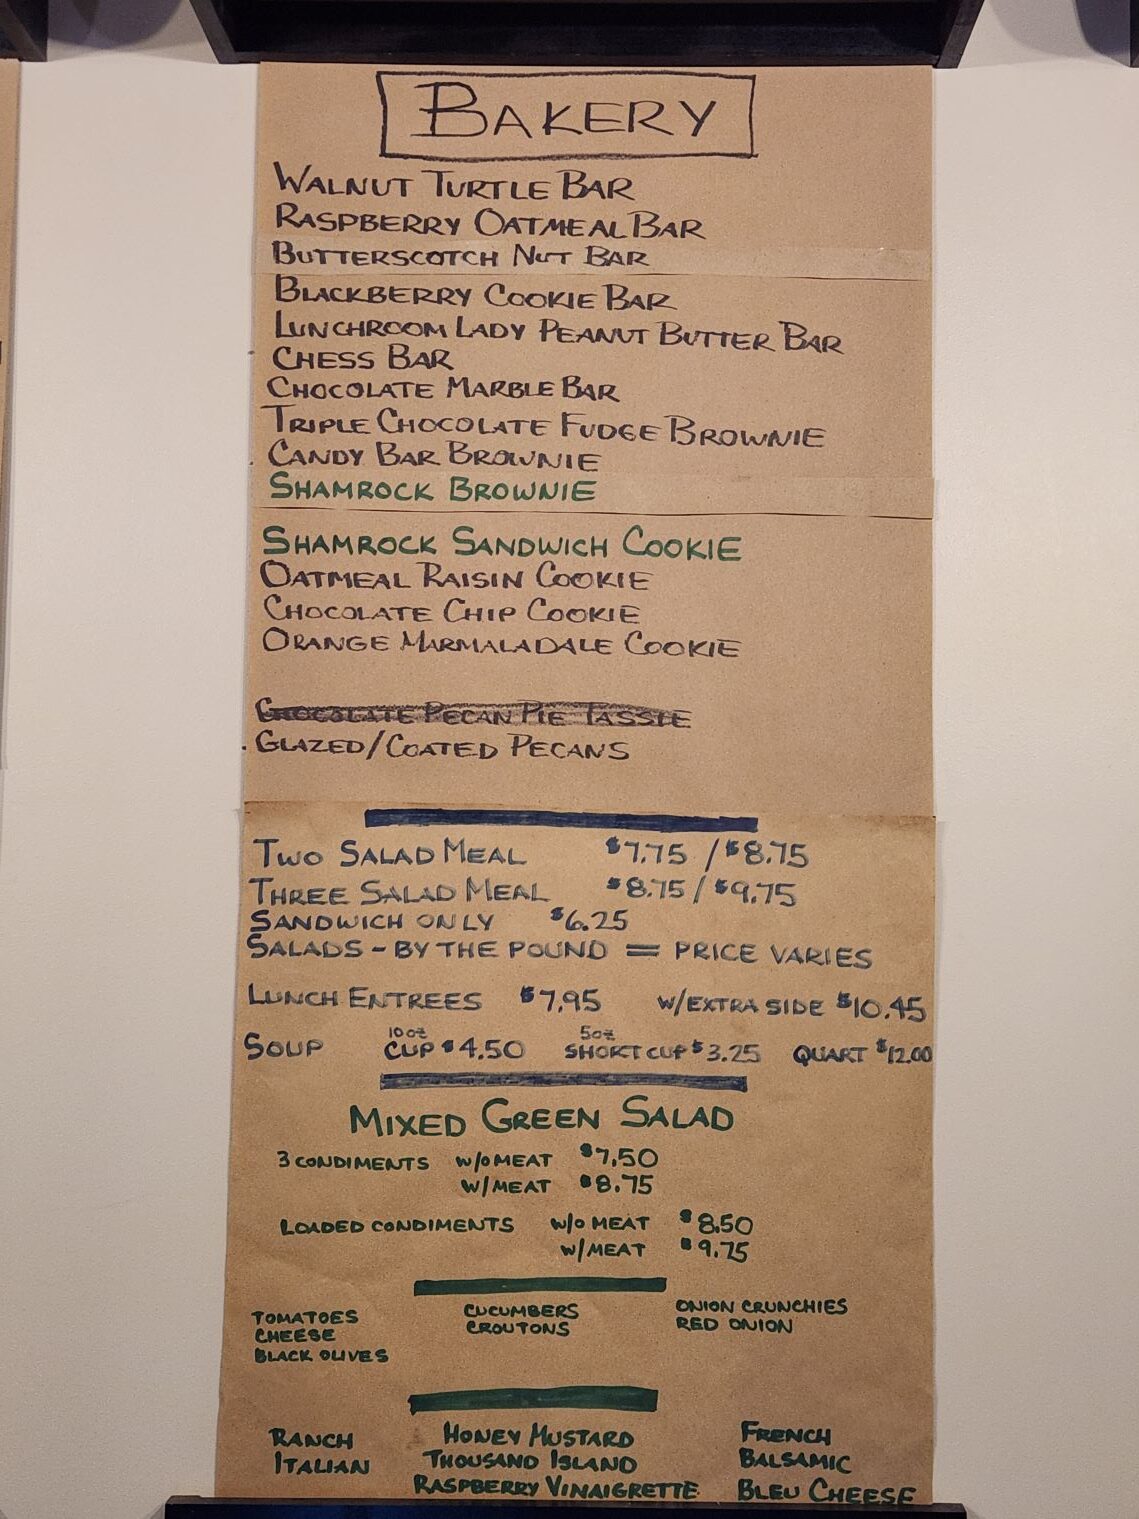 BAKERY
WALNUT TURTLE BAR
RASPBERRY OATMEAL BAR
BUTTERSCOTCH NUT BAR
BLACKBERRY COOKIE BAR
LUNCHROOM LADY PEANUT BUTTER BAR
CHESS BAR
CHOCOLATE MARBLE BAR
TRIPLE CHOCOLATE FUDGE BROWNIE
CANDY BAR BROWNIE
SHAMROCK BROWNIE
SHAMROCK SANDWICH COOKIE
OATMEAL RAISIN COOKIE
CHOCOLATE CHIP COOKIE
ORANGE MARMALADALE COOKIE
CHOCOLATE PECAN PIE TASSIE
GLAZED/COATED PECANS
TWO SALAD MEAL $7.75 / $8.75
THREE SALAD MEAL $8.75 / $9.75
SANDWICH ONLY $6.25
SALADS - BY THE POUND = PRICE VARIES
LUNCH ENTREES $7.95 W/EXTRA SIDE $10.45
SOUP 10 oz CUP $4.50 5 oz SHORT CUP $3.25 QUART $12.00
MIXED GREEN SALAD
3 CONDIMENTS W/O MEAT $7.50
W/MEAT $8.75
LOADED CONDIMENTS W/O MEAT $8.50
W/MEAT $9.75
TOMATOES CUCUMBERS ONION CRUNCHIES
CHEESE CROUTONS RED ONION
BLACK OLIVES
RANCH HONEY MUSTARD FRENCH
ITALIAN THOUSAND ISLAND BALSAMIC
RASPBERRY VINAIGRETTE BLEU CHEESE